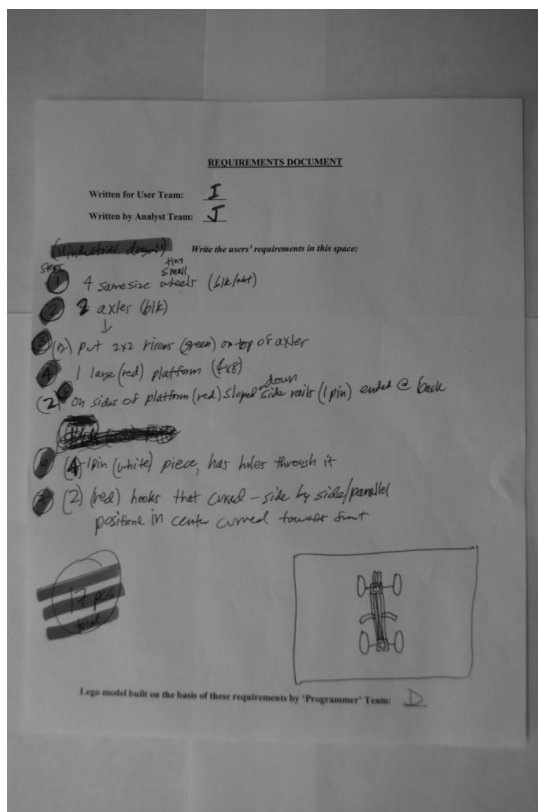 REQUIREMENTS DOCUMENT
Written for User Team: I
Written by Analyst Team: J
Write the users' requirements in this space:
steps
tiny
small
1 4 same size wheels (blk/wht)
2 2 axles (blk)
↓
3 (2) put 2x2 risers (green) on top of axles
4 1 large (red) platform (4x8)
down
(2) on sides of platform (red) sloped side rails (1pin) ended @ back
(4) 1pin (white) piece, has holes through it
(2) (red) hooks that curved - side by side/parallel
positione in center curved towards front
17 pcs
total
Lego model built on the basis of these requirements by 'Programmer' Team: D